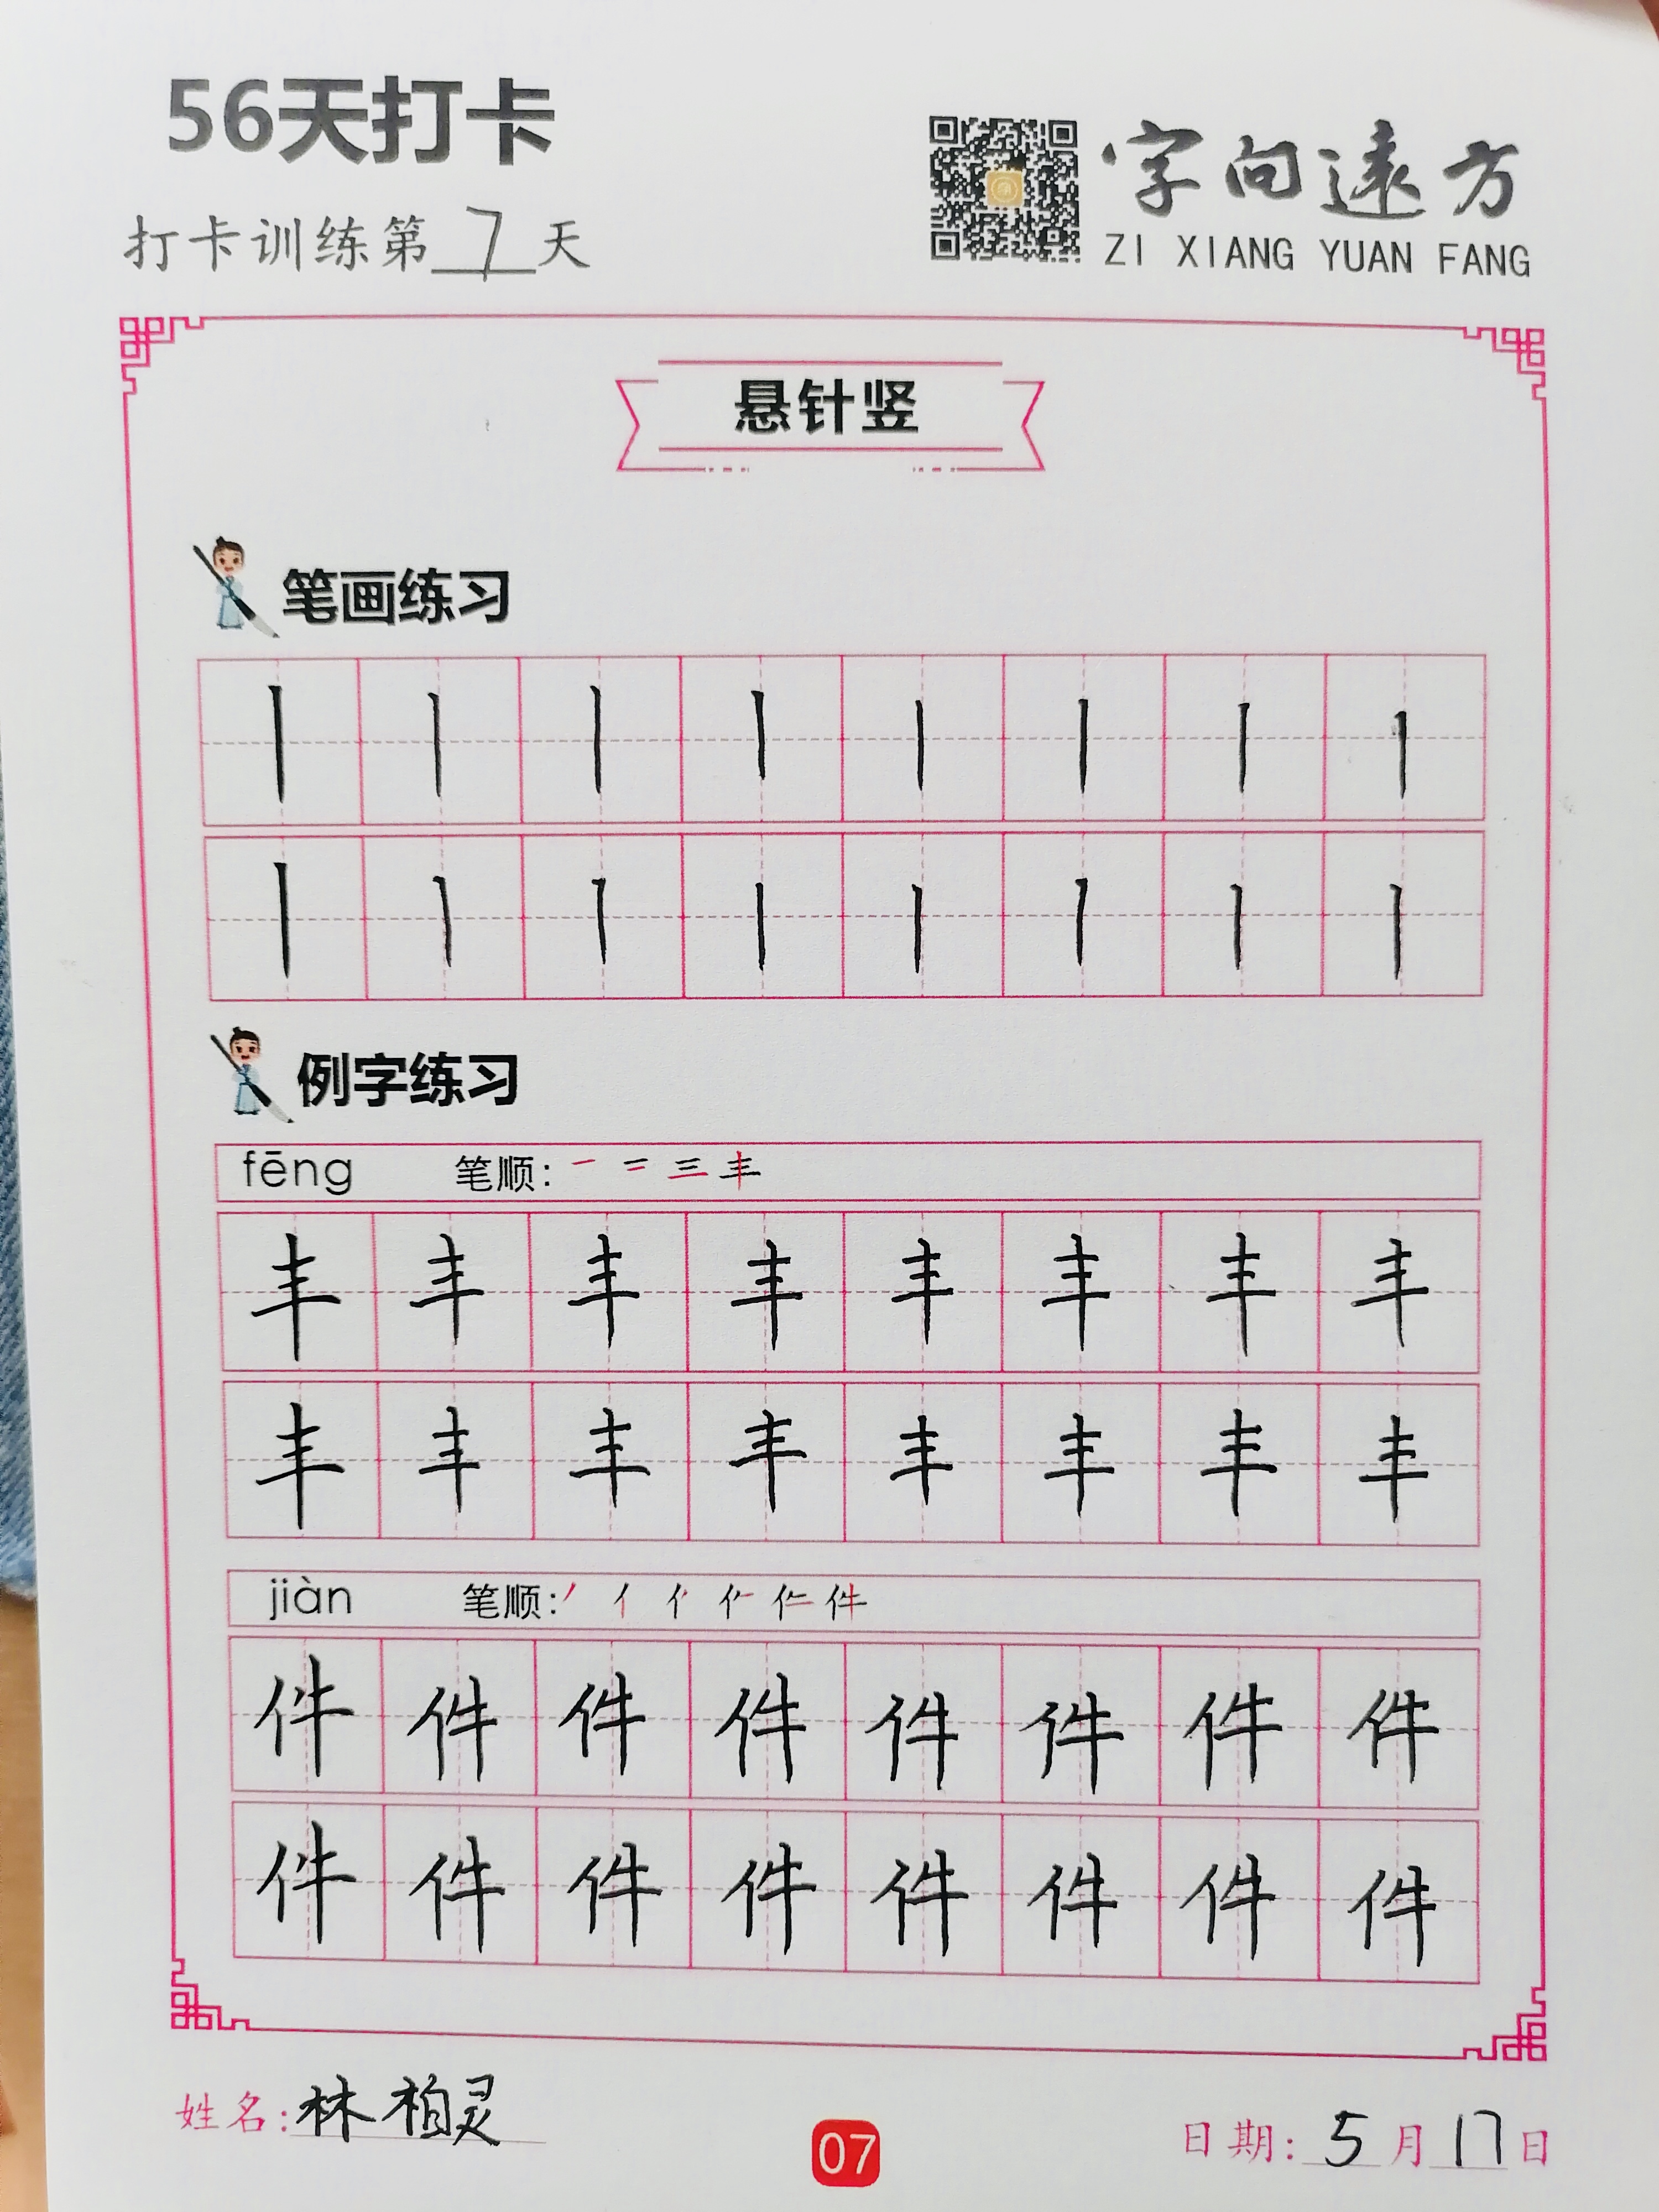 56天打卡
打卡训练第7天
字向遠方
ZI XIANG YUAN FANG
悬针竖
笔画练习
丨丨丨丨丨丨丨丨
丨丨丨丨丨丨丨丨
例字练习
fēng 笔顺: 一 二 三 丰
丰丰丰丰丰丰丰丰
丰丰丰丰丰丰丰丰
jiàn 笔顺:
件件件件件件件件
件件件件件件件件
姓名:林柏灵
07
日期:5月17日